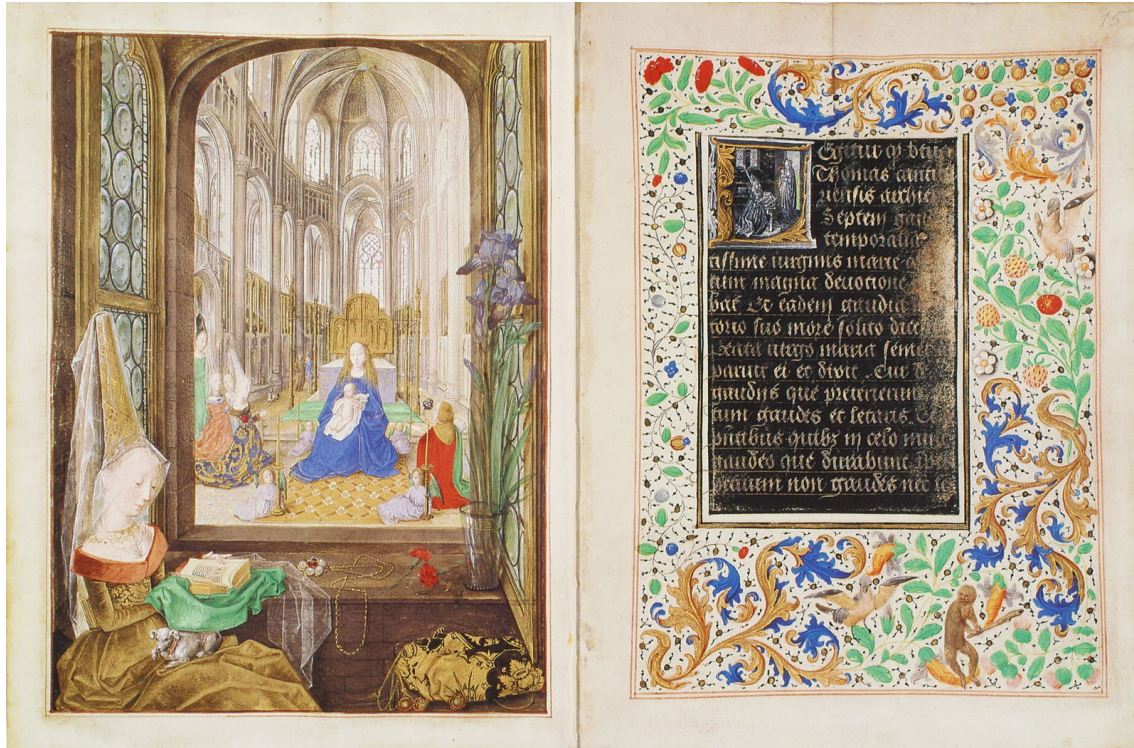 15
Egitur q beat
Thomas cantu
riensis archie
Septem gau
temporalia
tissime virginis marie
cum magna devotione
bat Et eadem gaudia
torio suo more solito dice
virgo maria semel
paruit ei et dixit . Cur
gaudijs que preterierunt
tum gaudes et letaris
pntibus quibz in celo nunc
gaudeo que durabunt
petuum non gaudes nec le